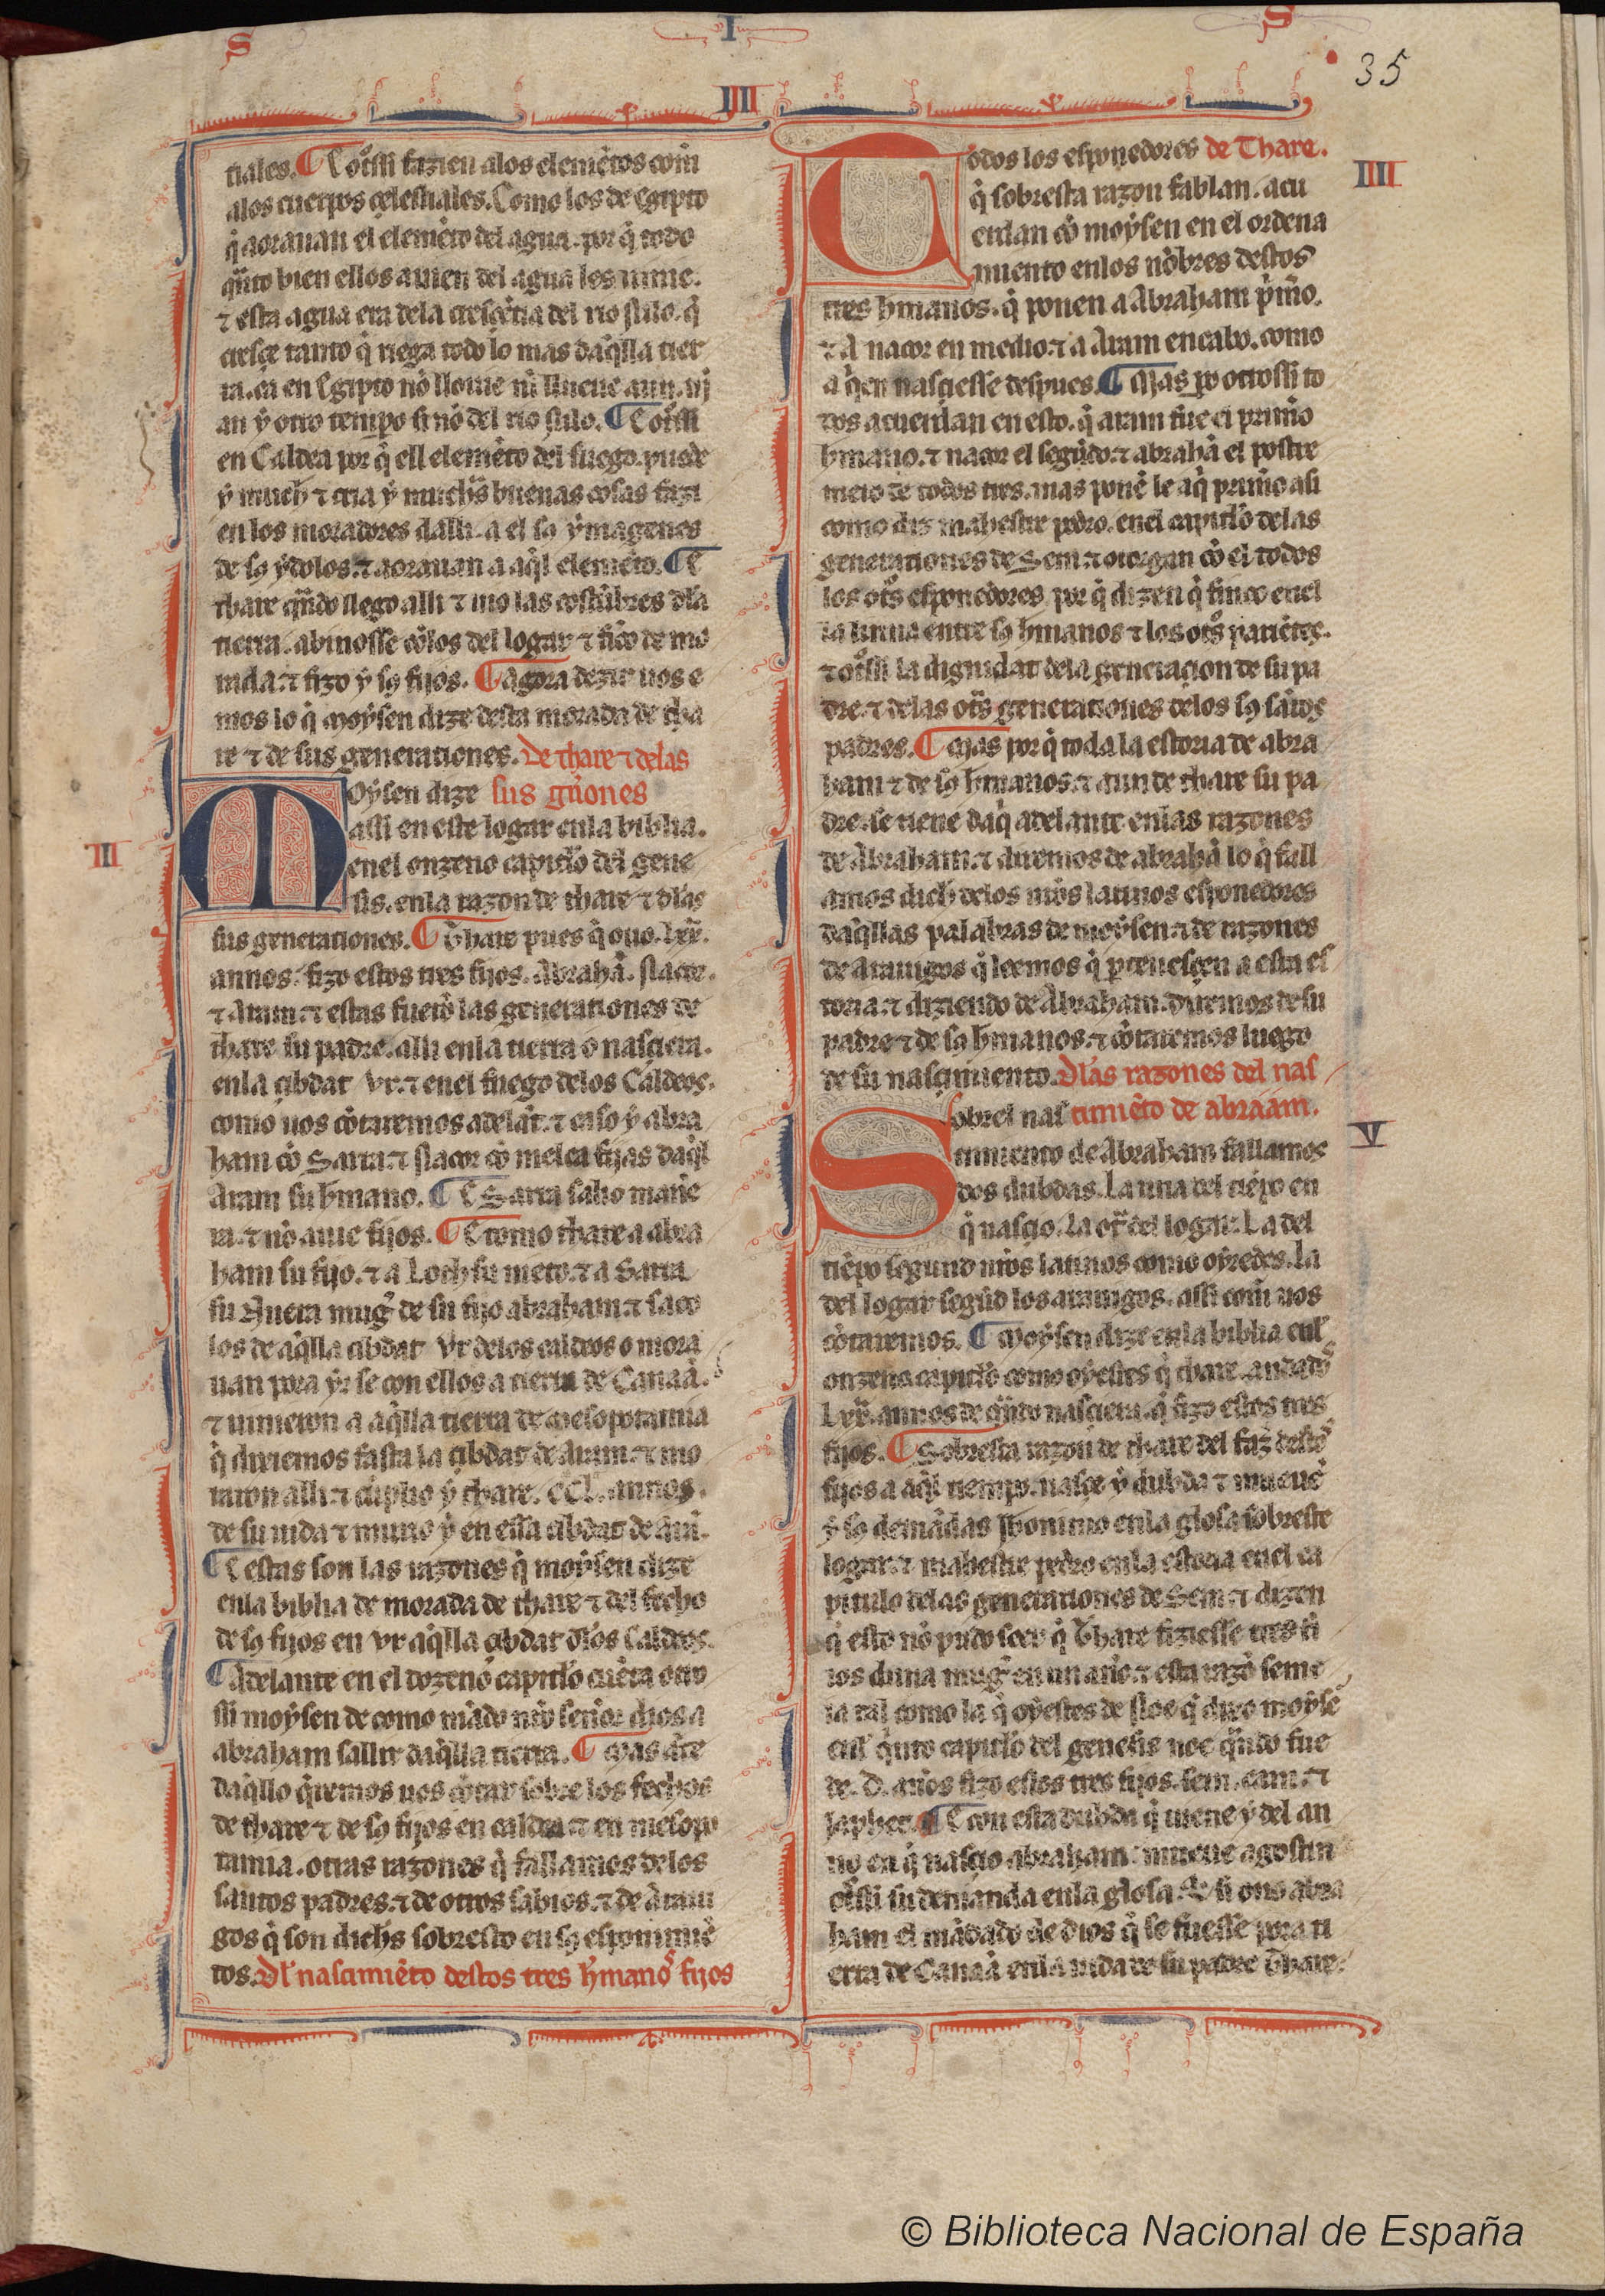 S I S
35
IIII
tiales. ¶ Et otrossi fazien alos elemẽtos com̃
alos cuerpos çelestiales. Como los de Egipto
q̃ aorauan el elemẽto del agua. por q̃ todo
qñto bien ellos auien del agua les uinie.
⁊ esta agua era dela cresçẽtia del rio Nilo. q̃
cresçe tanto q̃ riega todo lo mas daq̃lla tier
ra. ca en Egipto nõ llouie ni llueue aun. nj
an ẏ otro tempo si nõ del rio Nilo. ¶ E otrssi
en Caldea por q̃ ell elemẽto del fuego. puede
ẏ much ⁊ cria ẏ muchas buenas cosas fazi
en los moradores dalli. a el so ẏmagenes
de so ẏdolos. ⁊ aorauan a aq̃l elemẽto. ¶ E
thare qñdo llego alli ⁊ uio las costũbres dla
tierra. abinosse cõlos del logar ⁊ fico de mo
rada. ⁊ fizo ẏ so fijos. ¶ Agora dezir uos e
mos lo q̃ Moẏsen dize desta morada de tha
re ⁊ de sus generationes. De thare ⁊ delas
II
Moẏsen dize sus gñones
assi en este logar enla biblia.
enel onzeno capitlo del gene
sis. enla razon de thare ⁊ dlas
sus generationes. ¶ Thare pues q̃ ouo. lxx.
annos. fizo estos tres fijos. Abrahã. Nacor.
⁊ Aram. ⁊ estas fuerõ las generationes de
thare su padre. alli enla tierra o nasçiera.
enla çibdat Vr. ⁊ enel fuego delos Caldeos.
como uos cõtaremos adelãt. ⁊ caso ẏ abra
ham cõ Sarra. ⁊ Nacor cõ melca fijas daq̃l
Aram su hmano. ¶ E Sarra salio mañe
ra. ⁊ nõ auie fijos. ¶ E tomo thare a abra
ham su fijo. ⁊ a Loth su nieto. ⁊ a Sarra
su Nuera mug̃ de su fijo abraham. ⁊ saco
los de aq̃lla cibdat Vr delos caldeos o mora
uan pora ẏr se con ellos a tierra de Canaã.
⁊ uinieron a aq̃lla tierra de mesopotamia
q̃ diriemos fasta la çibdat de Aram. ⁊ mo
raron alli. ⁊ cũplio ẏ thare. CCL. annos.
de su uida ⁊ murio ẏ en essa cibdat de Ará.
¶ Estas son las razones q̃ moẏsen dize
enla biblia de morada de thare ⁊ del fecho
de so fijos en vr aq̃lla çibdat dlos Caldeos.
¶ Adelante en el dozeno capitlo cuẽta otro
ssi moẏsen de como mãdo nr̃o señor dios a
abraham sallir daq̃lla tierra. ¶ Mas ãte
daq̃llo q̃remos uos cõtar sobre los fechos
de thare ⁊ de so fijos en caldea ⁊ en mesopo
tamia. otras razones q̃ fallamos delos
santos padres. ⁊ de otros sabios. ⁊ de Araui
gos q̃ son dichs sobresto en so esponimiẽ
tos. Dl nascimiẽto destos tres hmanos fijos
IIII
Todos los esponedores de Thare.
q̃ sobresta razon fablan. acu
erdan cõ moẏsen en el ordena
miento enlos nõbres destos
tres hmanos. q̃ ponen a Abraham p̃mo.
⁊ A nacor en medio. ⁊ a Aram en cabo. como
a q̃en nasçiesse despues. ¶ Mas po otrossi to
dos acuerdan en esto. q̃ aram fue el primo
hmano. ⁊ nacor el segũdo. ⁊ abrahã el postre
mero de todos tres. mas ponẽ le aq̃ primo asi
como diz mahestre pedro. enel capitlo delas
generationes de Sem. ⁊ otorgan cõ el todos
los otros esponedores. por q̃ dizen q̃ finco enel
la linna entre so hmanos ⁊ los otrs pariẽtes.
⁊ otrssi la dignidat dela generaçion de su pa
dre. ⁊ delas otrs generationes delos so sãtos
padres. ¶ Mas por q̃ toda la estoria de abra
ham ⁊ de so hmanos. ⁊ aun de thare su pa
dre. se tiene daq̃ adelante enlas razones
de Abraham. ⁊ diremos de abrahã lo q̃ fall
amos dich delos nros latinos esponedores
daq̃llas palabras de moẏsen. ⁊ de razones
de Arauigos q̃ leemos q̃ pteneſçen a esta es
toria. ⁊ diziendo de Abraham. diremos de su
padre ⁊ de so hmanos. ⁊ cõtaremos luego
de su nasçimiento. Dlas razones del nas
V
Sobrel nas cimiẽto de abraam.
cimiento de Abraham fallamos
dos dubdas. La una del tiẽpo en
q̃ nasçio. La otr̃ del logar. La del
tiẽpo segund nros latinos como oẏredes. La
del logar segũd los arauigos. assi com̃ uos
cõtaremos. ¶ Moẏsen dize enla biblia enl
onzeno capitlo como oẏestes q̃ thare. andados
Lxx. annos de qñdo nasçiera. q̃ fizo estos tres
fijos. ¶ Sobresta razon de thare del faz destos
fijos a aq̃l tiempo. nasçe ẏ dubda ⁊ mueuẽ
ẏ so demãdas Jhonimo enla glosa sobreste
logar. ⁊ mahestre pedro enla estoria enel ca
pitulo delas generationes de Sem. ⁊ dizen
q̃ esto nõ pudo seer q̃ Thare fiziesse tres fi
ios duna mug̃ en un año. ⁊ esta razõ seme
ia tal como la q̃ oẏestes de Noe q̃ dixo moẏsẽ
enl q̃nto capitlo del genesis noe qñdo fue
de. D. años fizo estos tres fijos. sem. cam. ⁊
japhet. ¶ E con esta dubda q̃ uiene ẏ del an
no en q̃ nasçio abraham. mueue agostin
otrssi su demanda enla glosa. de si ouo abra
ham el mãdado de dios q̃ se fuesse pora ti
erra de Canaã enla uida de su padre Thare.
© Biblioteca Nacional de España